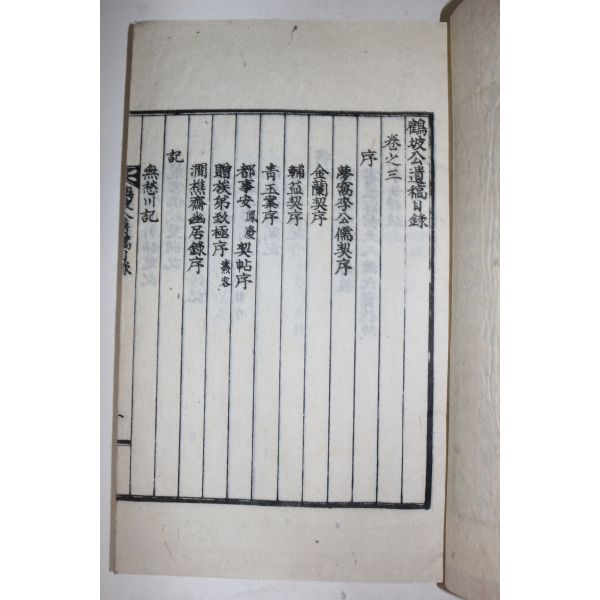 鶴坡公遺稿目錄
卷之三
序
夢窩李公儒契序
金蘭契序
輔益契序
青玉案序
都事安鳳慶契帖序
贈族弟致極序
澗樵齋幽居錄序
記
無愁川記